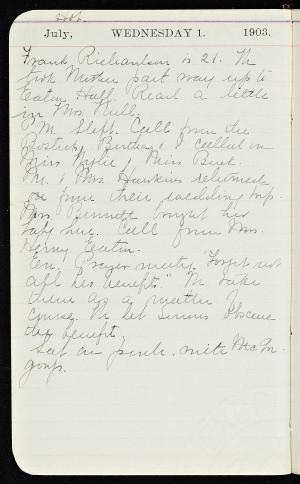 Hot.
July, WEDNESDAY 1. 1903.
Frank Richardson is 21. M
took Mother part way up to
Eaton Hall. Read a little
in Mrs. Hull.
P.M. Slept. Call from the
called on
Miss Wylie, Miss
Mr. & Mrs. Hawkins returned
from their wedding trip.
Mrs. Bennett brought her
here. Call from Mrs.
Henry Eaton.
Ev. Prayer meeting. "Forget not
all his benefits." M take
them as a matter of
course. M let
the benefit.
Sat on porch with